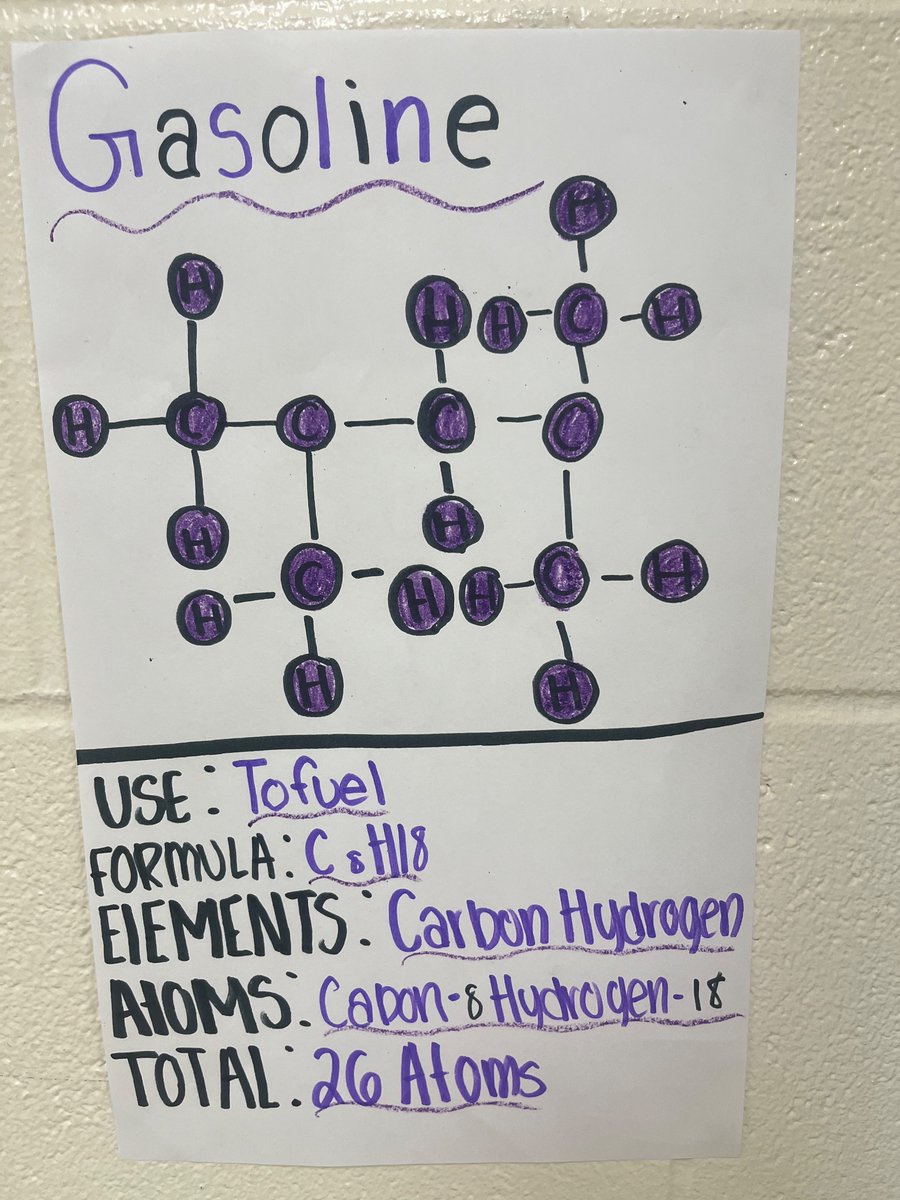 Gasoline
H
H H C H
H C C C C
H H
H C H H C H
H H
USE: Tofuel
FORMULA: C8H18
ElEMENTS: Carbon Hydrogen
AtOMS: Cabon-8 Hydrogen-18
TOTAL: 26 Atoms